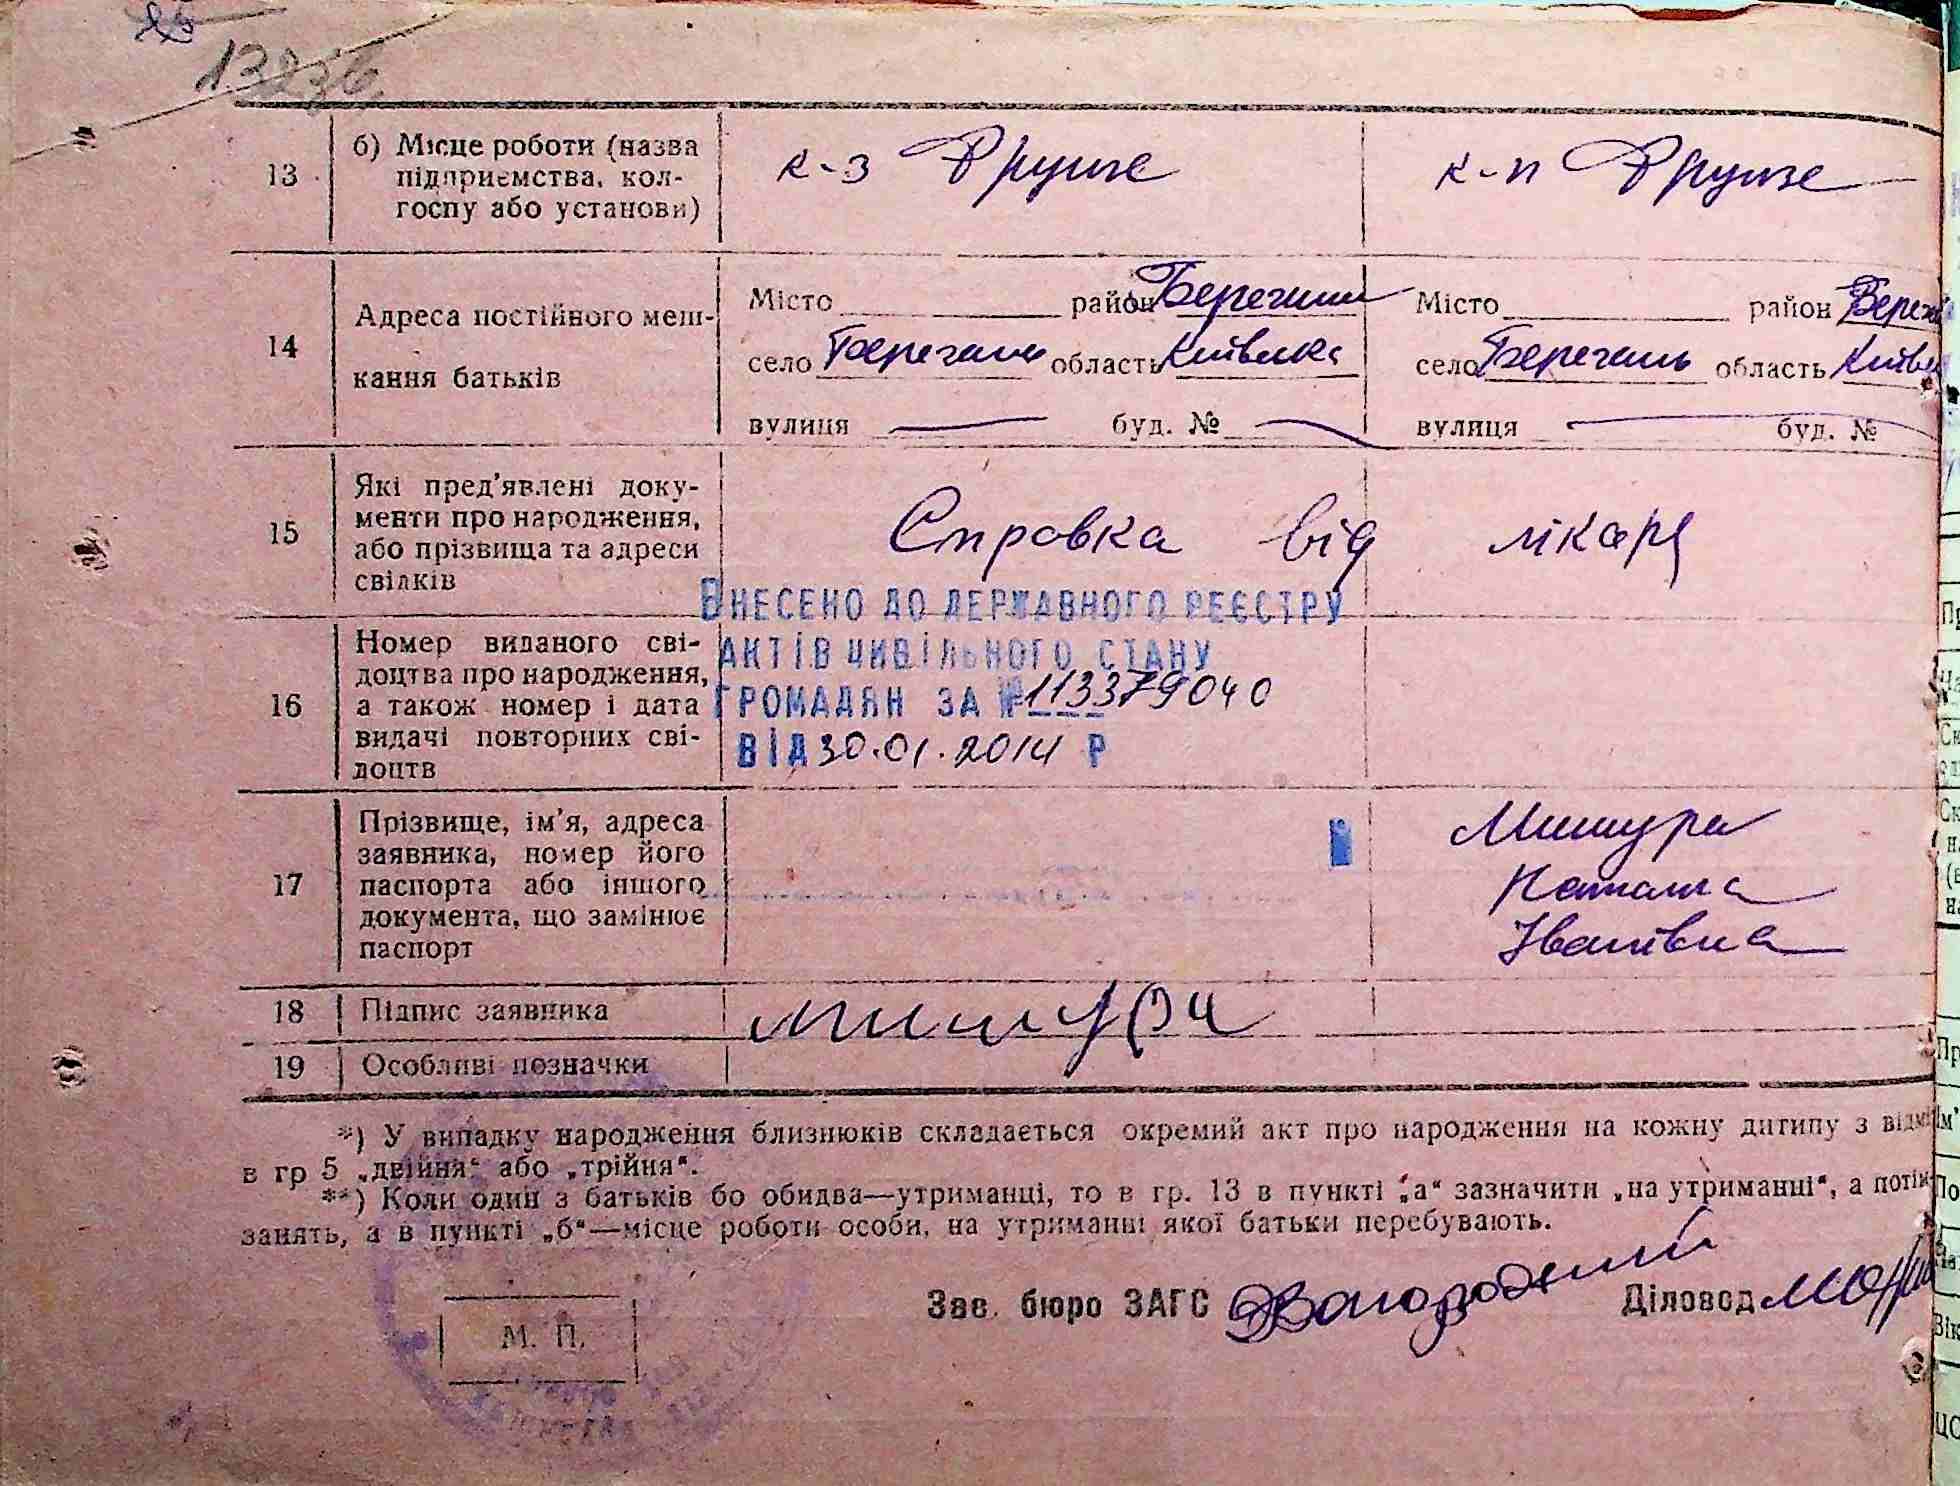 1323б.
13 б) Місце роботи (назва підприємства, колгоспу або установи) к-з Фрунзе к-п Фрунзе
14 Адреса постійного мешкання батьків
Місто район Березань Місто район Берез
село Березань область Київська село Березань область Київ
вулиця — буд. № — вулиця — буд. №
15 Які пред'явлені документи про народження, або прізвища та адреси свідків Справка від лікаря
ВНЕСЕНО ДО ДЕРЖАВНОГО РЕЄСТРУ
АКТІВ ЦИВІЛЬНОГО СТАНУ
ГРОМАДЯН ЗА № 113379040
ВІД 30.01.2014 Р
16 Номер виданого свідоцтва про народження, а також номер і дата видачі повторних свідоцтв
17 Прізвище, ім'я, адреса заявника, номер його паспорта або іншого документа, що замінює паспорт
Мишура
Наталка
Іванівна
18 Підпис заявника Мишура
19 Особливі позначки
*) У випадку народження близнюків складається окремий акт про народження на кожну дитину з відмі
в гр 5 „двійня“ або „трійня“.
**) Коли один з батьків бо обидва—утриманці, то в гр. 13 в пункті „а“ зазначити „на утриманні“, а потім
занять, а в пункті „б“—місце роботи особи, на утриманні якої батьки перебувають.
Зав. бюро ЗАГС Діловод
М. П.